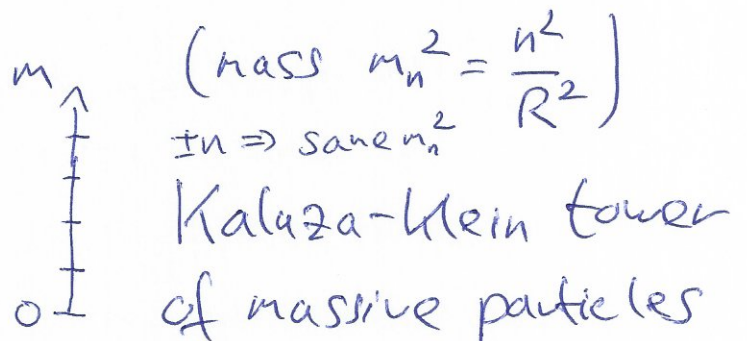 (mass m_n^2 = n^2/R^2)
m
±n ⇒ same m_n^2
Kaluza-Klein tower
of massive particles
0